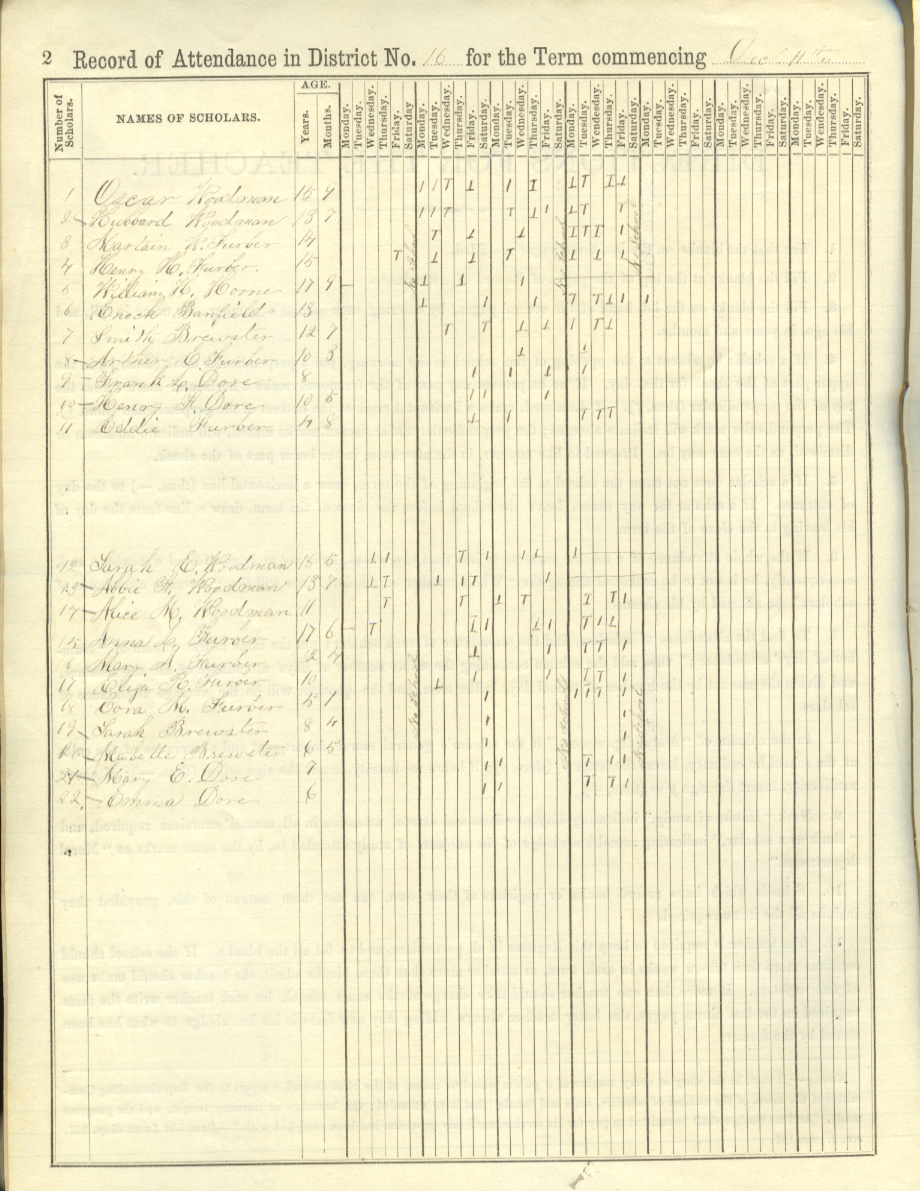 2 Record of Attendance in District No. 16 for the Term commencing Dec. 11th
Number of Scholars.
NAMES OF SCHOLARS.
AGE.
Years. Months.
Monday. Tuesday. Wednesday. Thursday. Friday. Saturday. Monday. Tuesday. Wednesday. Thursday. Friday. Saturday. Monday. Tuesday. Wednesday. Thursday. Friday. Saturday. Monday. Tuesday. Wendesday. Thursday. Friday. Saturday. Monday. Tuesday. Wednesday. Thursday. Friday. Saturday. Monday. Tuesday. Wednesday. Thursday. Friday. Saturday. Monday. Tuesday. Wendesday. Thursday. Friday. Saturday.
1 Oscar Woodman 15 4
2 Hubbard Woodman 13 7
3 Martain W. Furber 14
4 Henry H. Furber. 15
5 William H. Horne 17 9
6 Enoch Banfield 13
7 Smith Brewster 12 7
8 Arther C. Furber 10 3
9 Frank L. Dore 8
10 Henry F. Dore 10 5
11 Eddie Furber 4 8
No School
No School
No School
12 Sarah E. Woodman 15 5
13 Abbie F. Woodman 13 7
14 Alice M. Woodman 11
15 Anna L. Furber 17 6
16 Mary A. Furber 12 4
17 Eliza R. Furber 10
18 Cora M. Furber 5 1
19 Sarah Brewster 8 4
20 Mabelle Brewster 6 5
21 Mary E. Dore 7
22. Emma Dore 6
No School
No School
No School